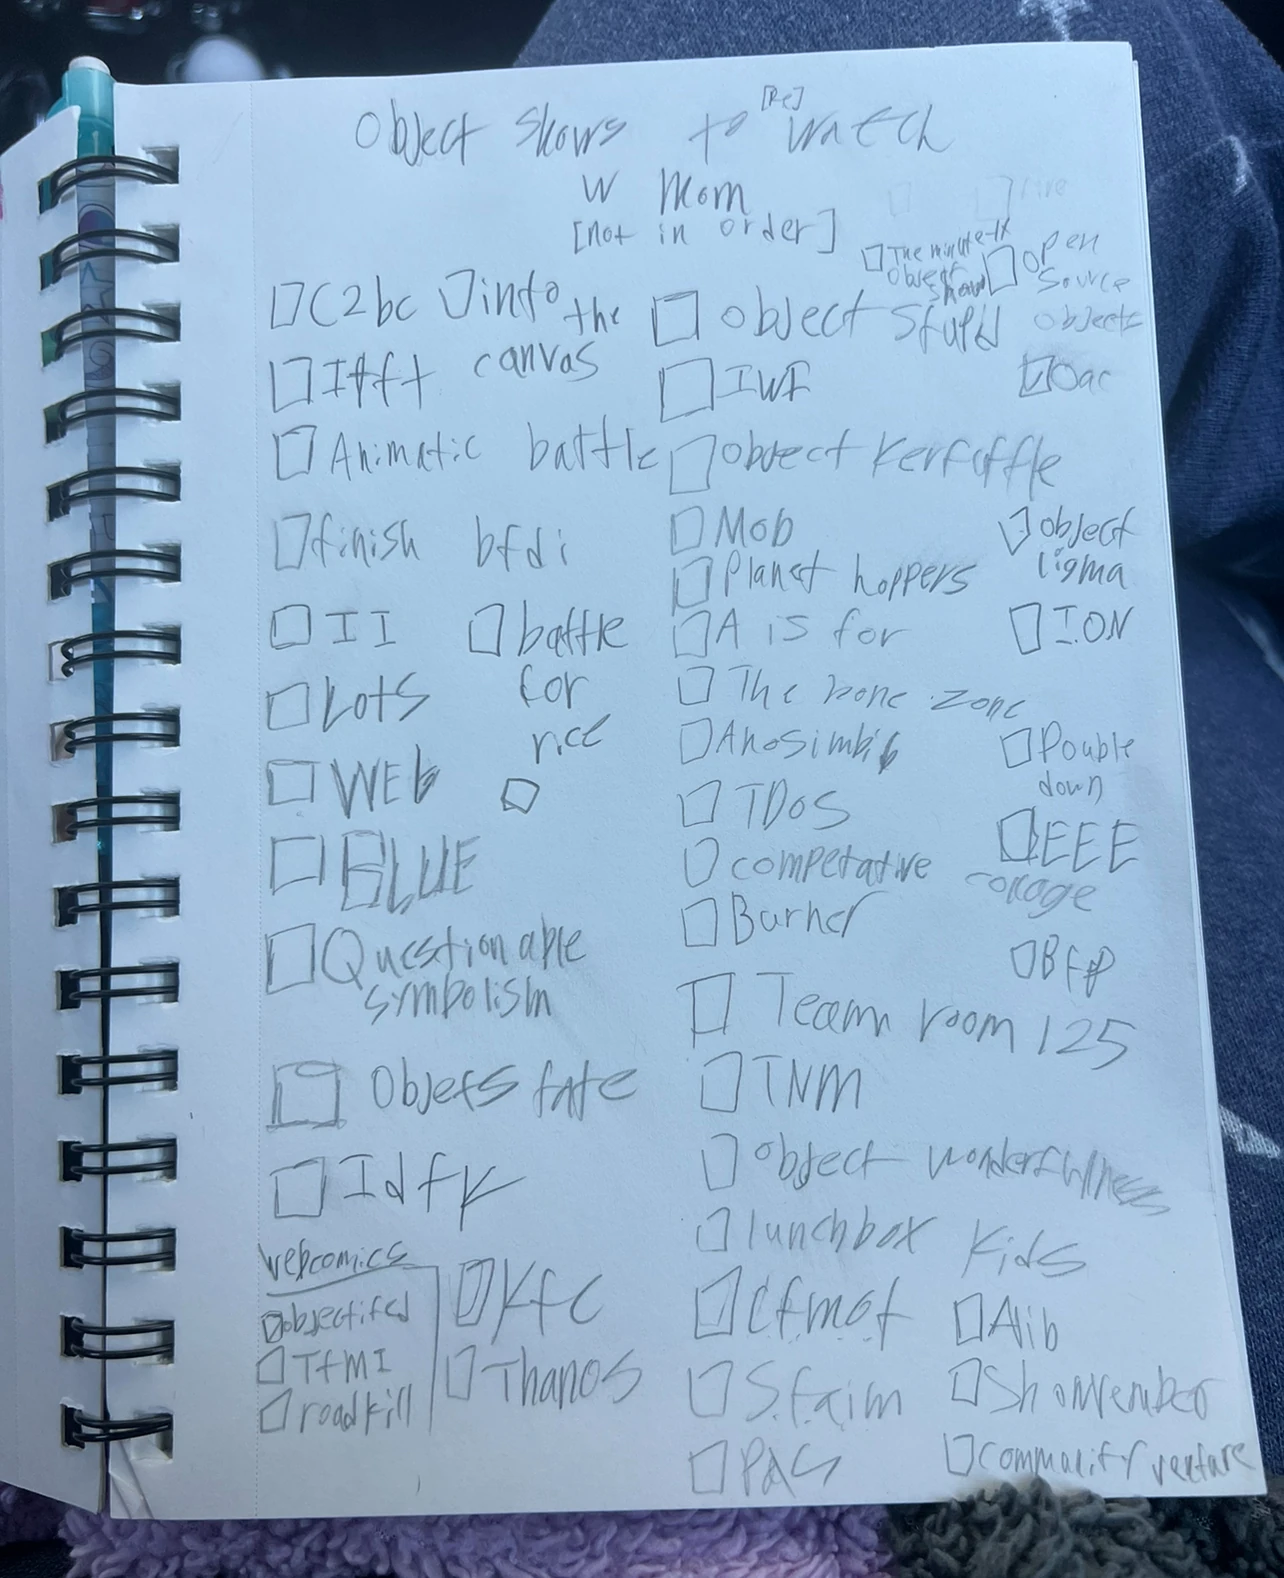 Object shows to [Re] watch
w Mom
[not in order]
C2bc
into the
canvas
Itft
Animatic battle
finish bfdi
II
battle
for
rice
Lots
WEb
BLUE
Questionable
symbolism
Objets fate
Idfk
Webcomics
objectifed
TfMI
roadkill
Kfc
Thanos
The minute-1x
object
show
open
source
objects
object stupid
Oac
IWF
object Kerfuffle
Mob
object
ligma
Planet hoppers
A is for
I.ON
The bone zone
Anosimbib
Double
down
TDOS
EEE
competative
collage
Burner
Bfp
Team room 125
TNM
object wonderfulness
lunchbox kids
Cfmot
Alib
S.f.a.i.m
Shonvember
PAS
Commuality venture